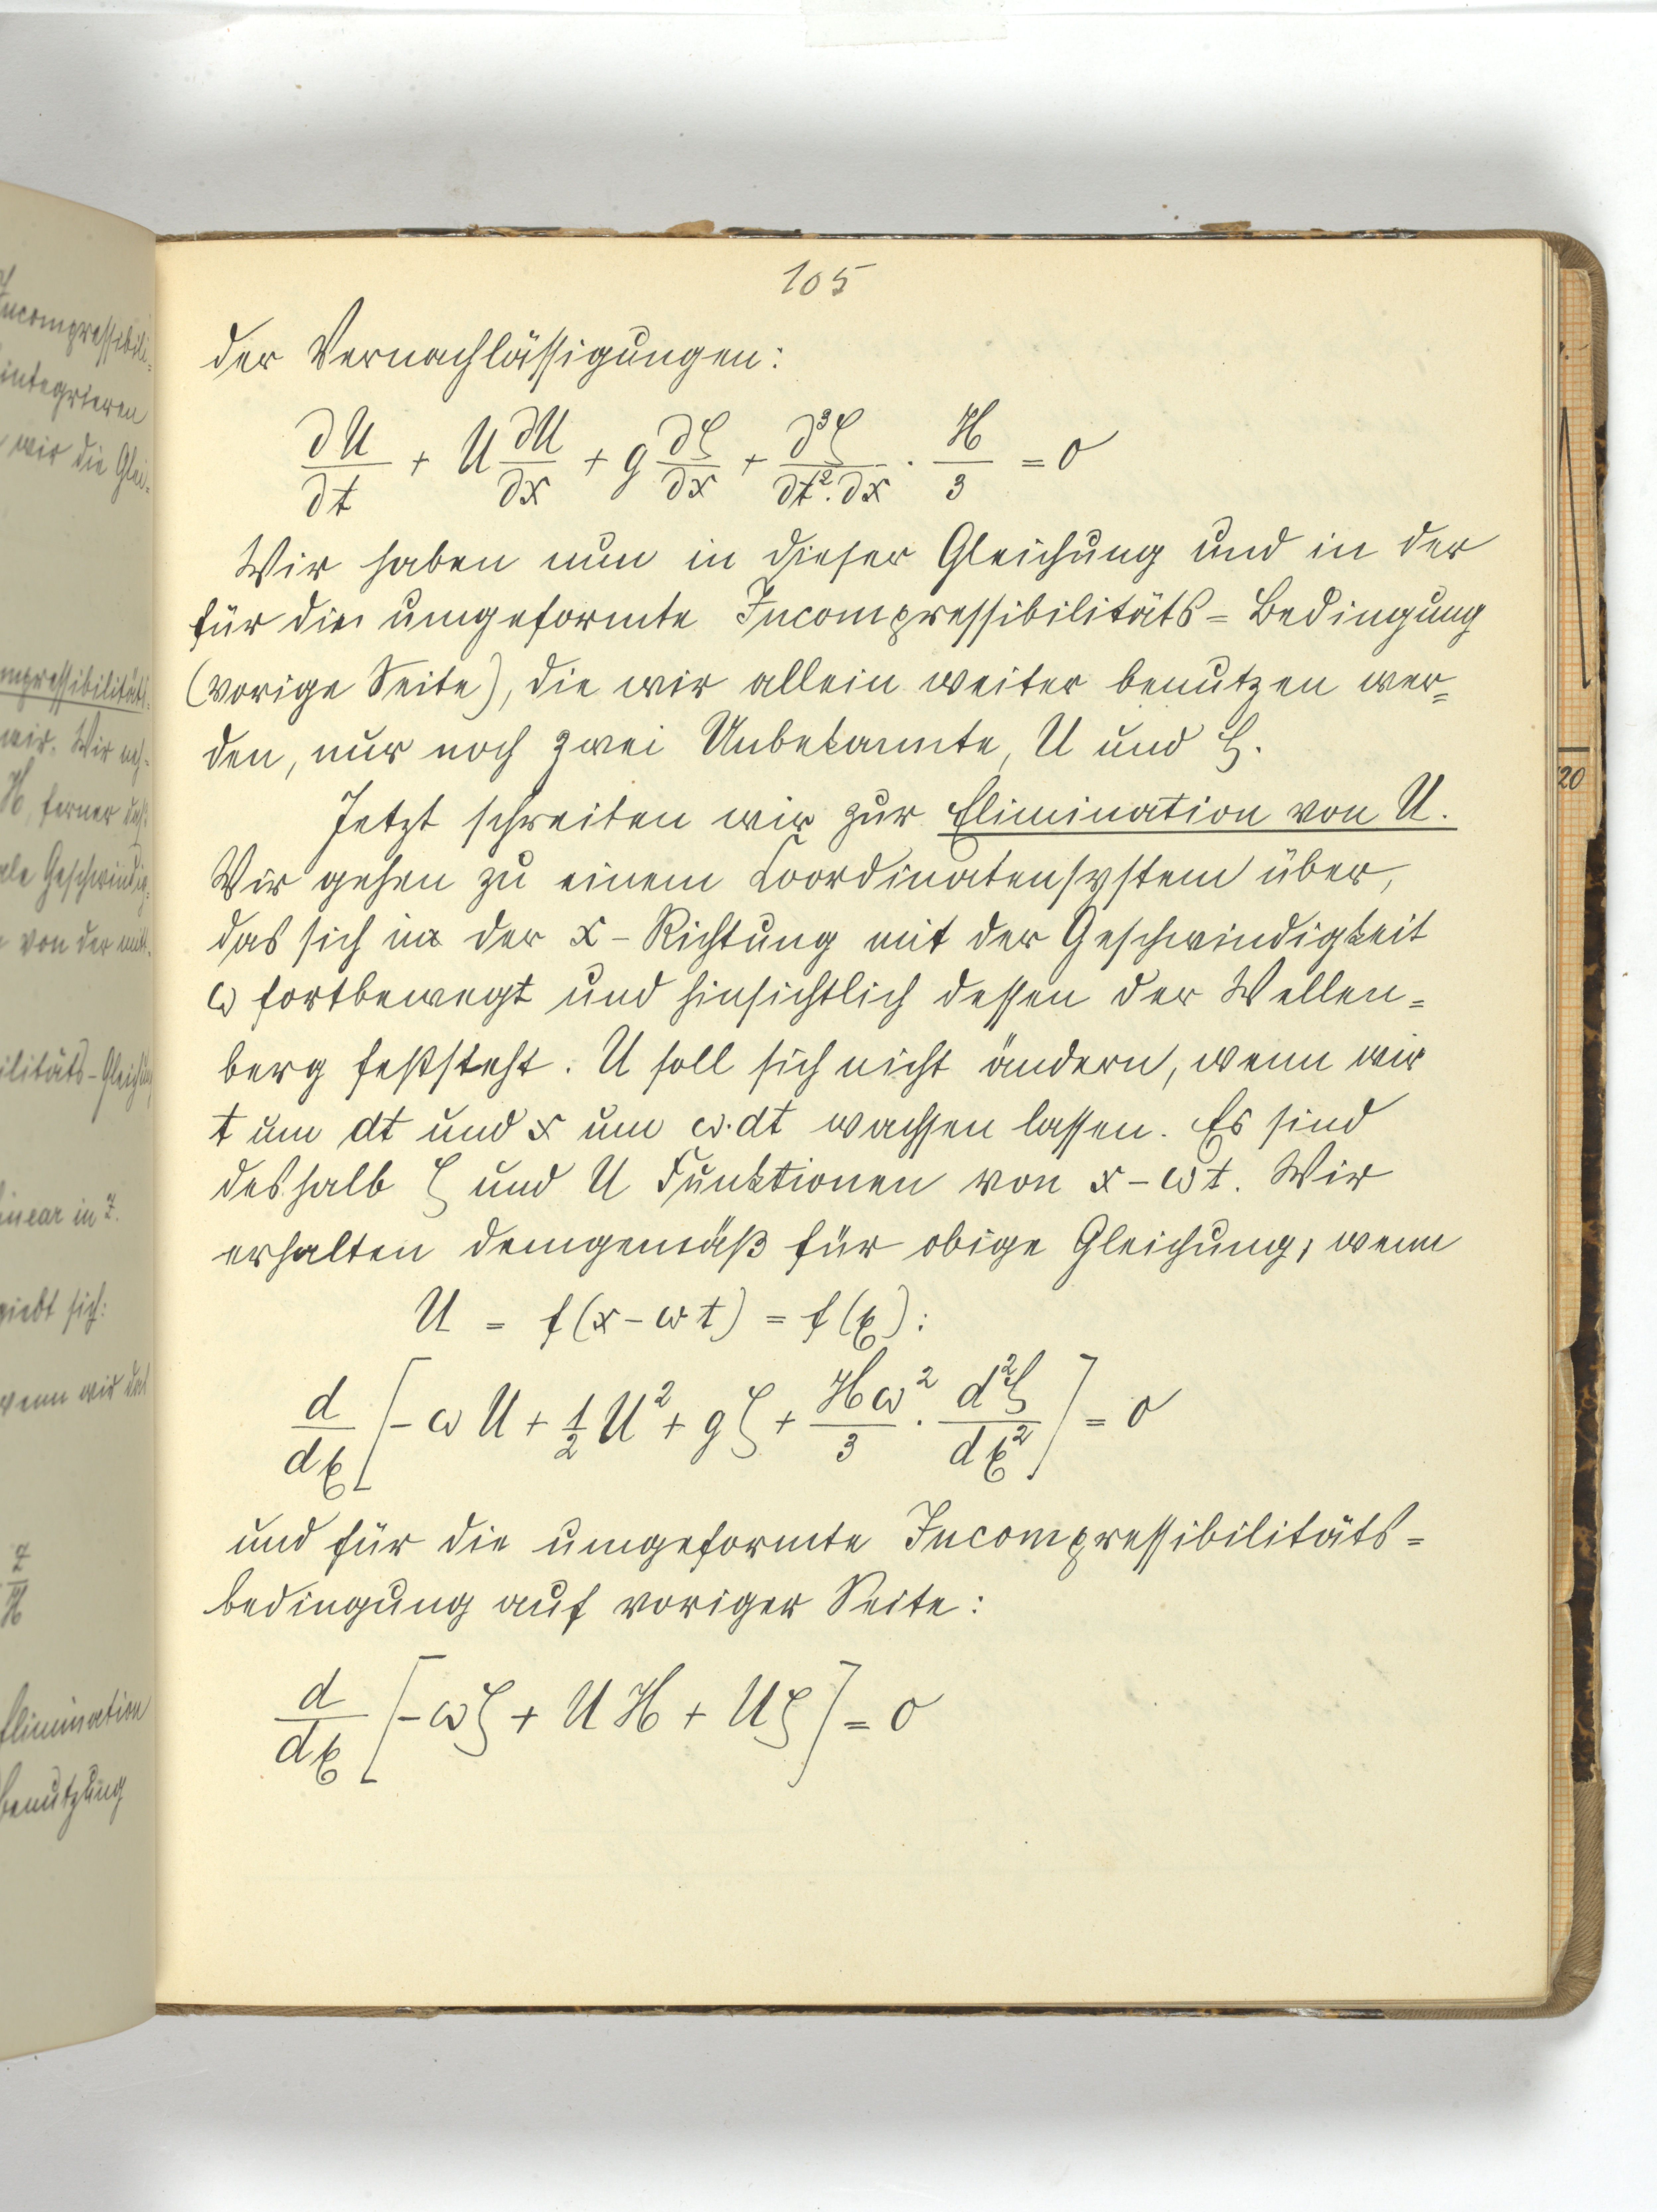 105
der Vernachlässigungen:
∂U/∂t + U ∂U/∂x + g ∂ζ/∂x + ∂³ζ/∂t²·∂x · H/3 = 0
Wir haben nun in dieser Gleichung und in der
für die umgeformte Incompressibilitäts=Bedingung
(vorige Seite), die wir allein weiter benutzen wer=
den, nur noch zwei Unbekannte, U und ζ.
Jetzt schreiten wir zur Elimination von U.
Wir gehen zu einem Coordinatensystem über,
das sich in der x-Richtung mit der Geschwindigkeit
ω fortbewegt und hinsichtlich dessen der Wellen=
berg feststeht. U soll sich nicht ändern, wenn wir
t um dt und x um ω·dt wachsen lassen. Es sind
deshalb ζ und U Funktionen von x-ωt. Wir
erhalten demgemäß für obige Gleichung, wenn
U = f(x-ωt) = f(ξ):
d/dξ [-ωU + 1/2 U² + gζ + Hω²/3 · d²ζ/dξ²] = 0
und für die umgeformte Incompressibilitäts=
bedingung auf voriger Seite:
d/dξ [-ωζ + UH + Uζ] = 0
20